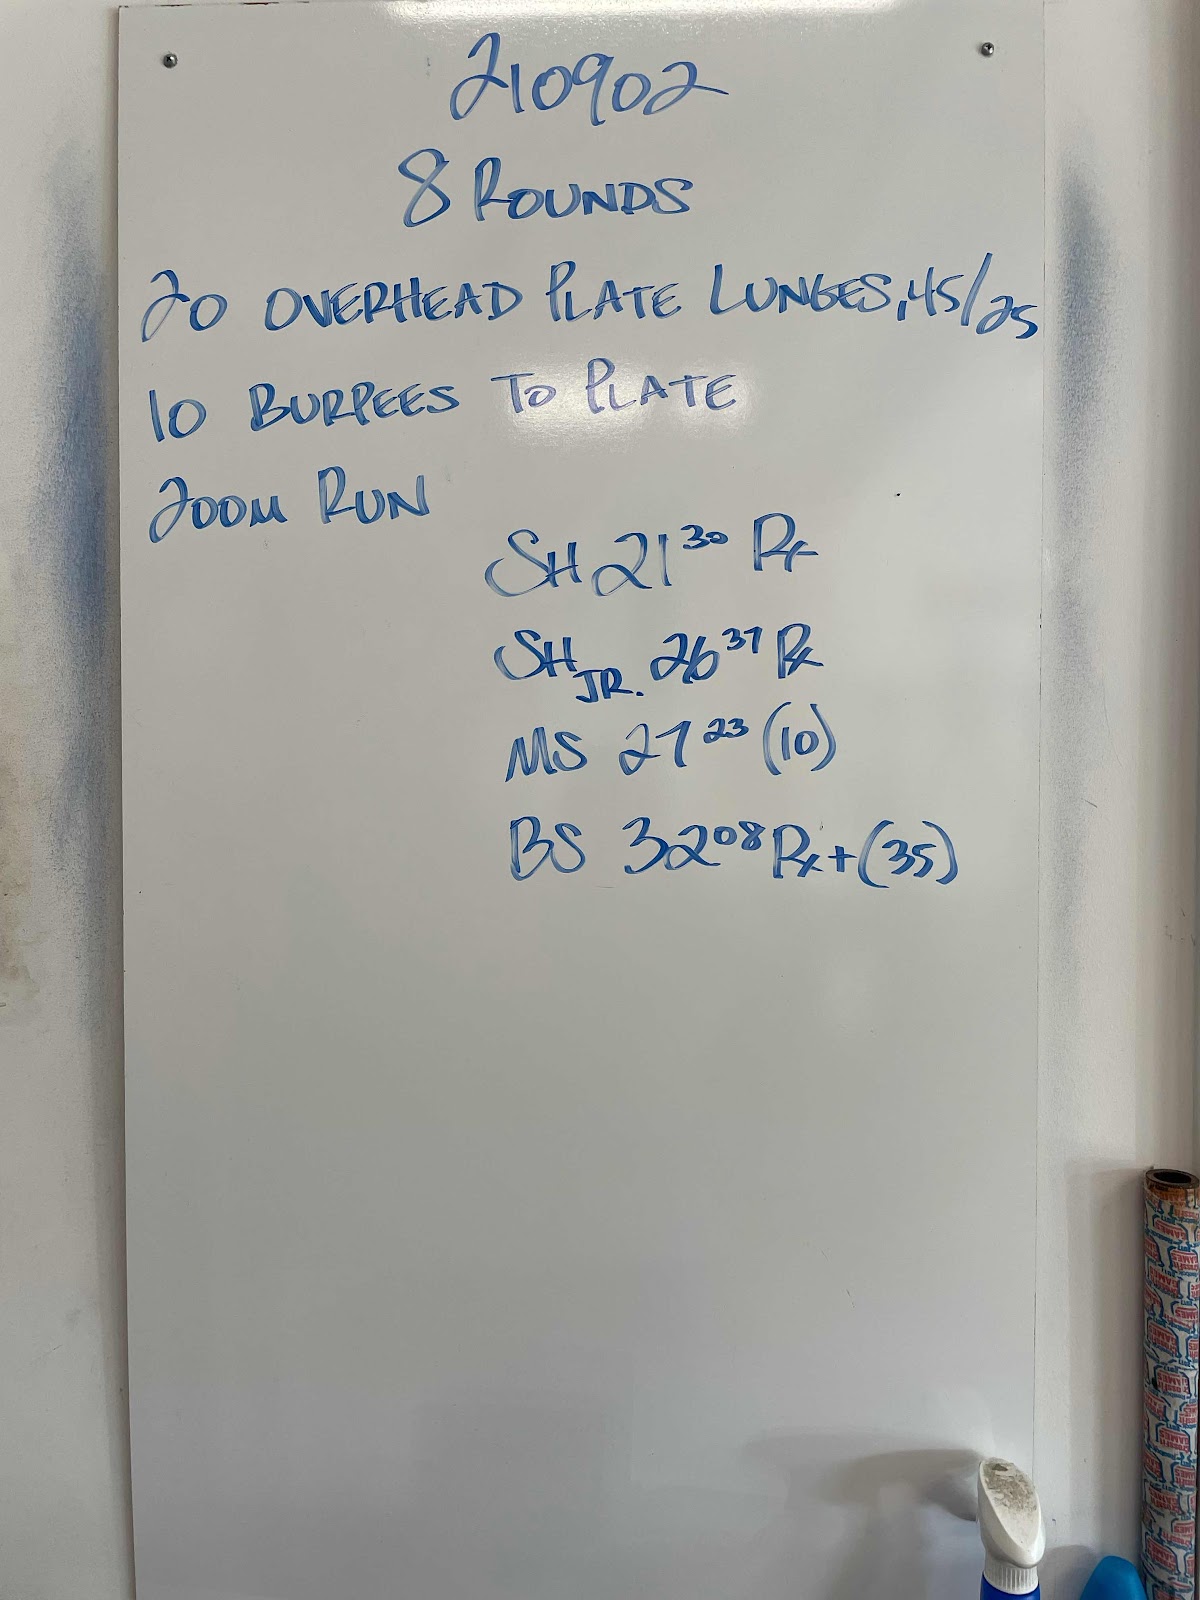 210902
8 ROUNDS
20 OVERHEAD PLATE LUNGES, 45/25
10 BURPEES TO PLATE
200M RUN
SH 21 30 Rx
SH JR. 26 37 Rx
MS 27 23 (10)
BS 32 08 Rx+(35)